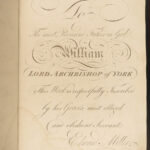 To
The most Reverend Father in God
William
LORD ARCHBISHOP of YORK
This Work is respectfully Inscribed
by his Grace's most obliged
and obedient Servant
Edwd. Miller